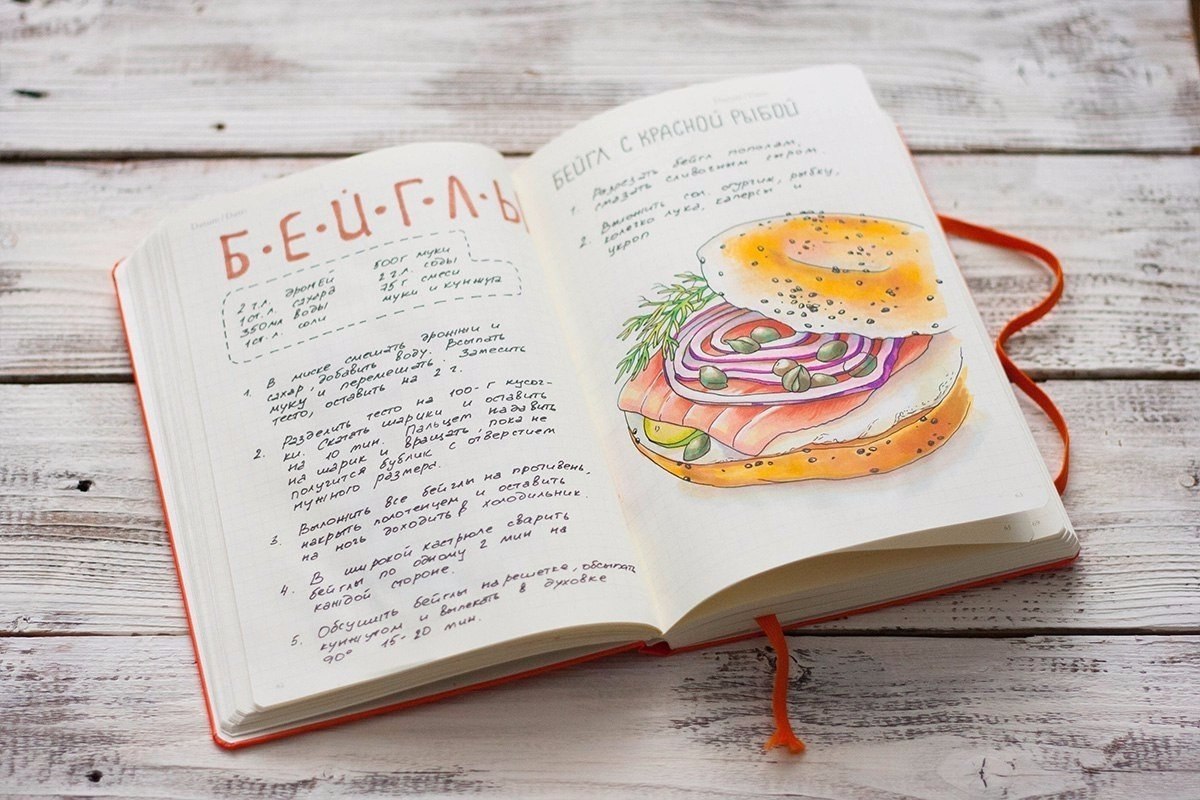 Б·Е·Й·Г·Л·Ы
2 ч.л. дрожжей
1 ст.л. сахара
350мл воды
1 ст.л. соли
500г муки
2 ч.л. соды
25 г смеси
муки и кунжута
1. В миске смешать дрожжи и
сахар, добавить воду. Всыпать
муку и перемешать. Замесить
тесто, оставить на 2 г.
2. Разделить тесто на 100-г кусоч-
ки. Скатать шарики и оставить
на 10 мин. Пальцем надавить
на шарик и вращать, пока не
получится бублик с отверстием
нужного размера.
3. Выложить все бейглы на противень,
накрыть полотенцем и оставить
на ночь доходить в холодильник.
4. В широкой кастрюле сварить
бейглы по одному 2 мин на
каждой стороне.
5. Обсушить бейглы на решетке, обсыпать
кунжутом и выпекать в духовке
90° 15-20 мин.
БЕЙГЛ С КРАСНОЙ РЫБОЙ
1. Разрезать бейгл пополам,
смазать сливочным сыром.
2. Выложить сол. огурчик, рыбку,
колечка лука, каперсы и
укроп